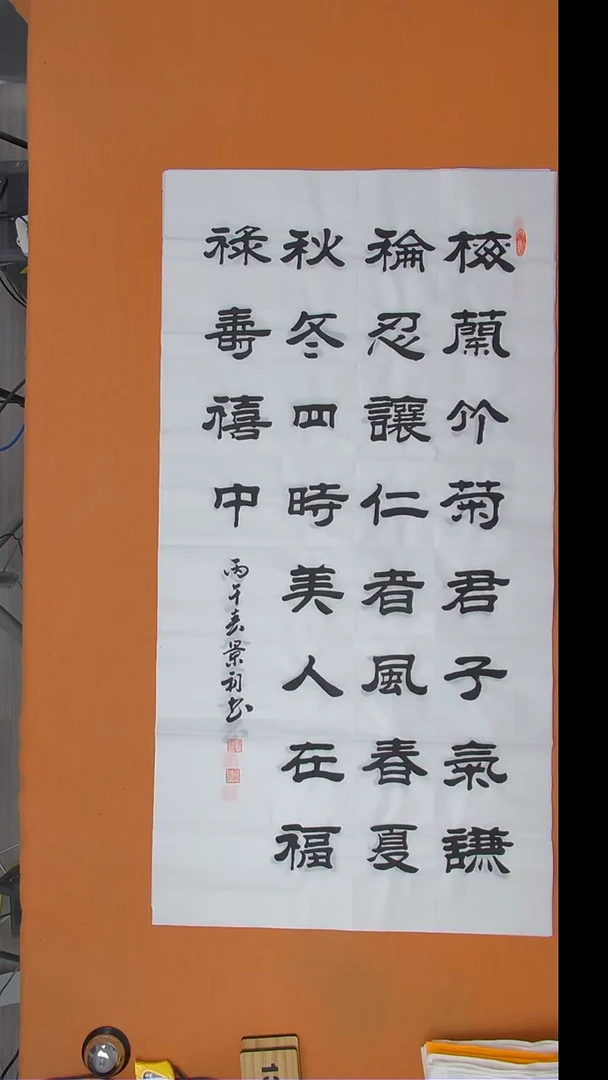 梅蘭竹菊君子氣謙
龢忍讓仁者風春夏
秋冬四時美人在福
祿壽禧中
丙午春景初书